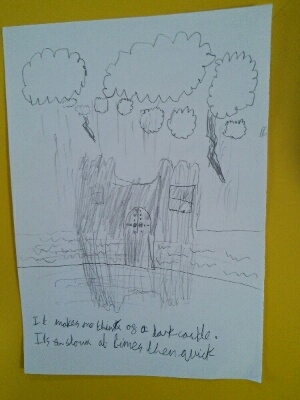 It makes me think of a dark castle.
Its slown at times then quick